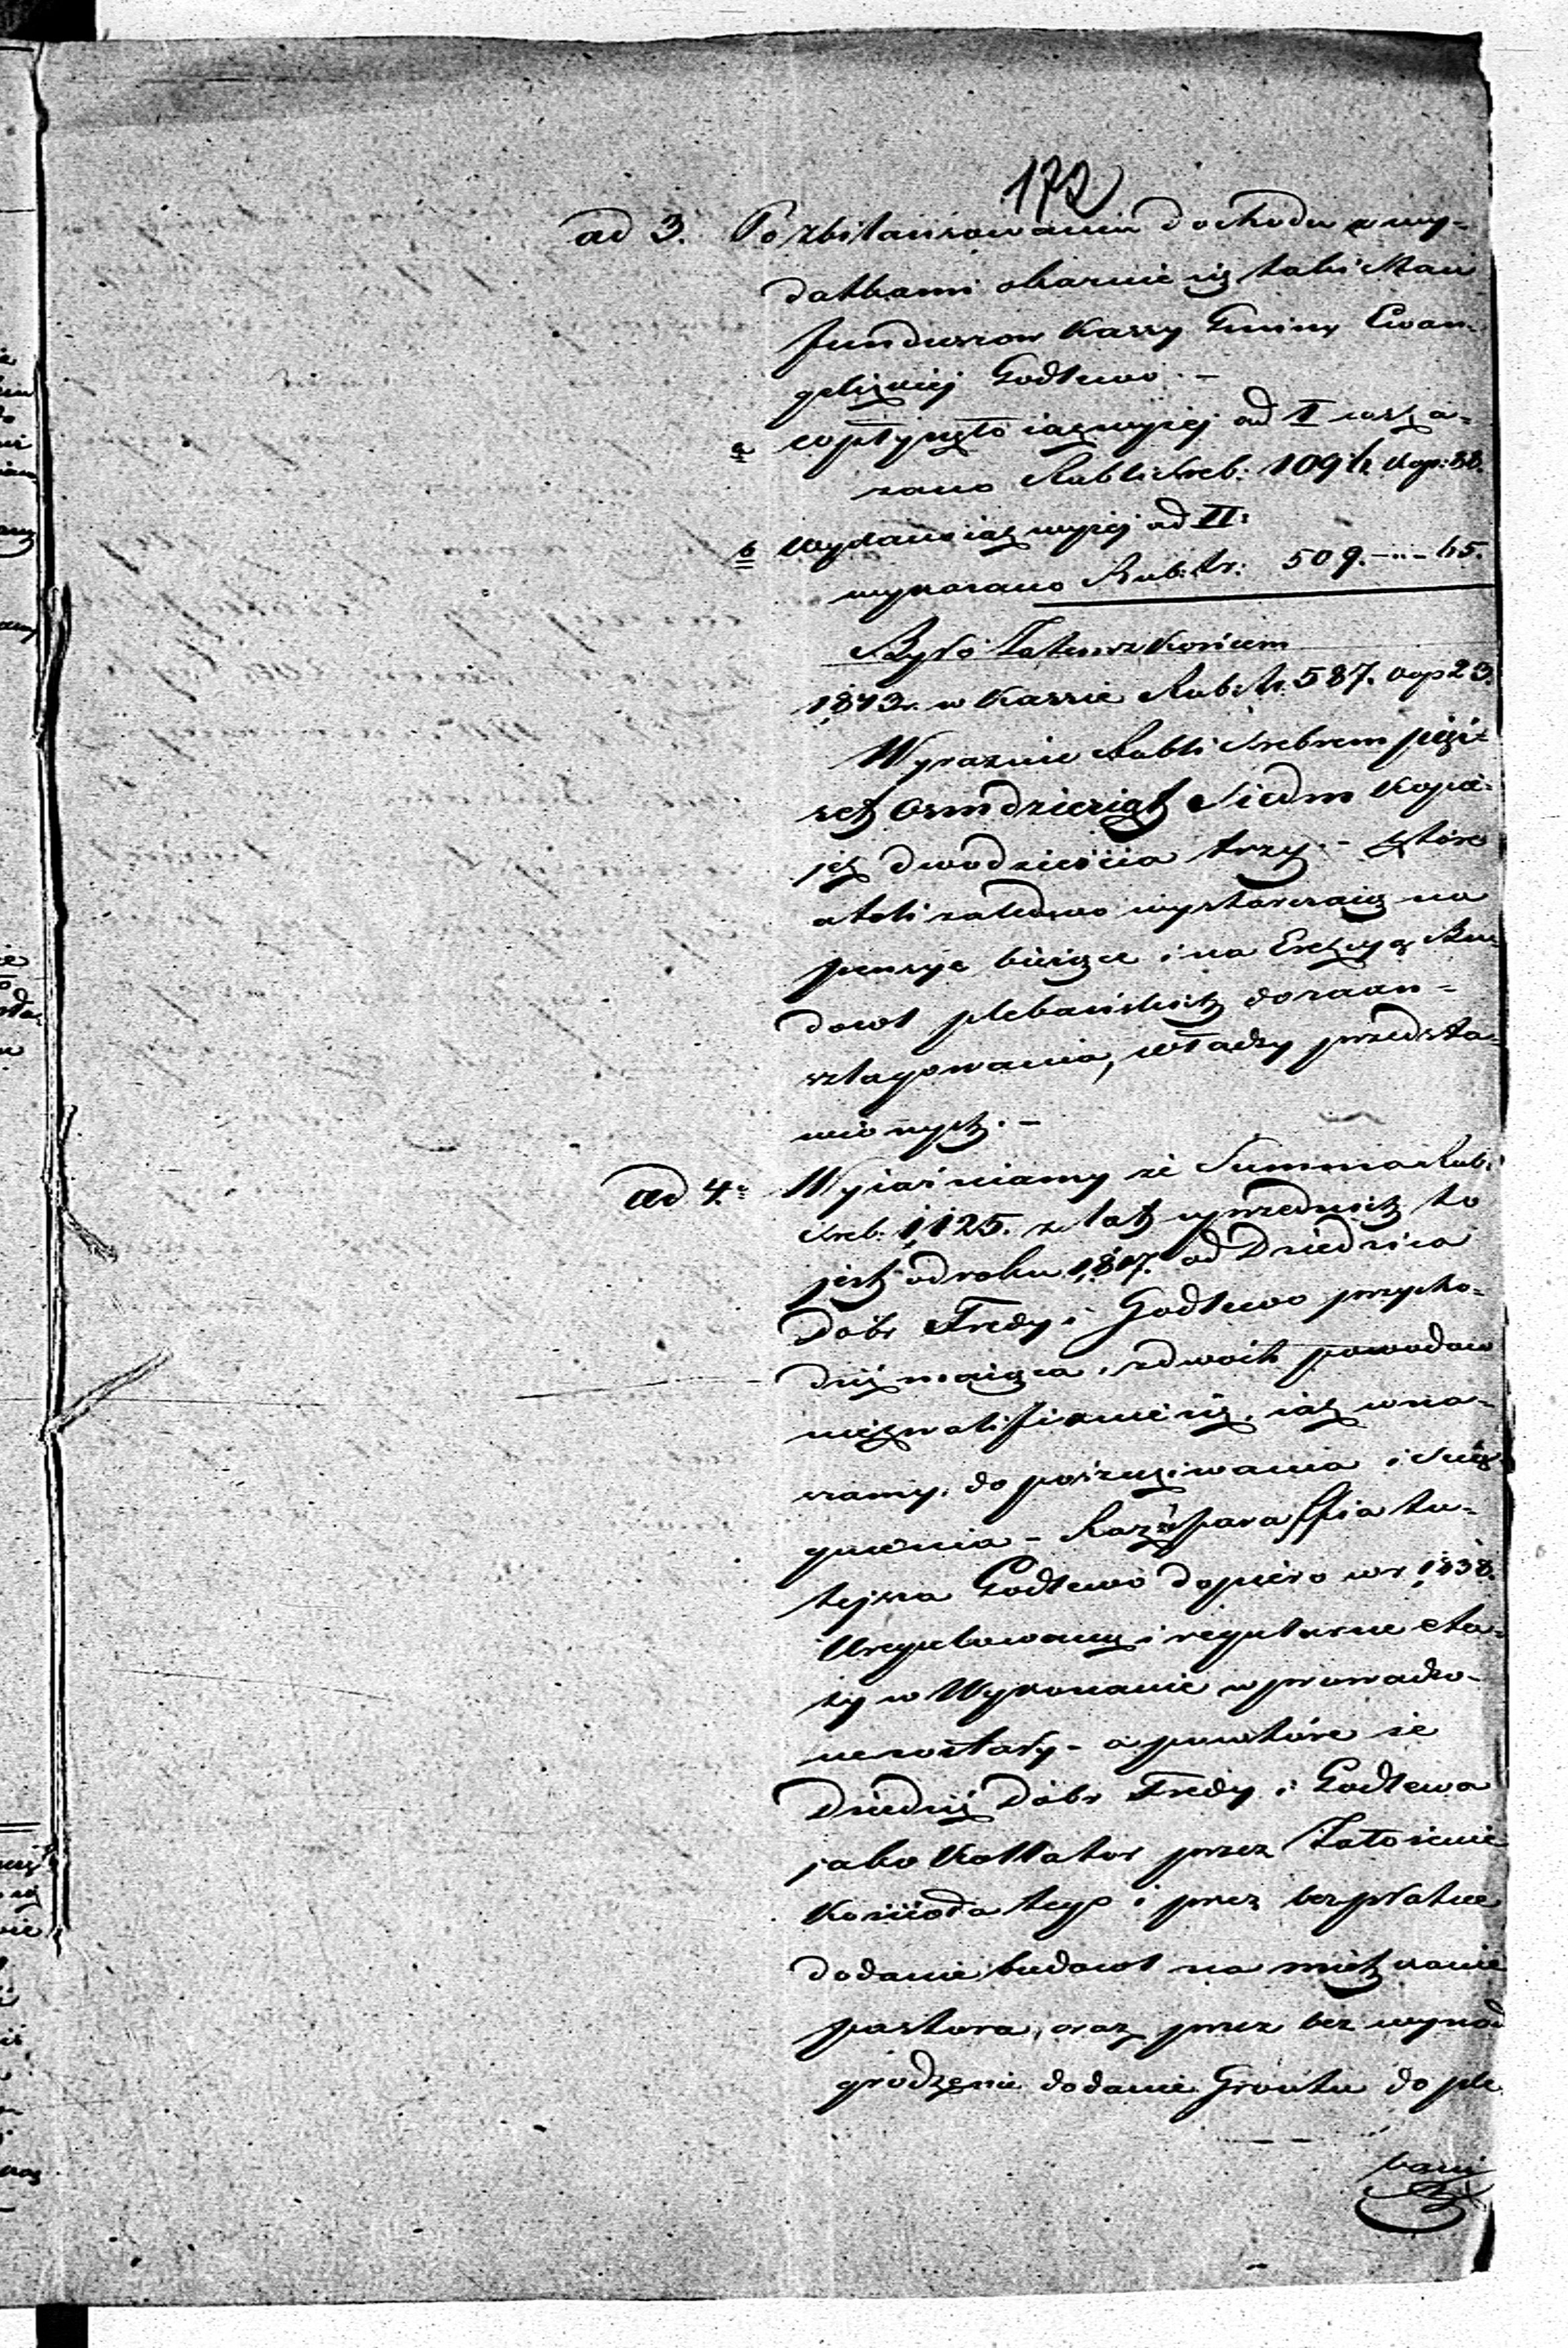 172
ad 3. Po zbilansowaniu dochodu z wy-
datkami okazuie się taki stan
funduszow Kassy Gminy Ewan-
gelickiej Godlewo. -
a wpłynęło iak wyżej ad I wska-
zano Rubli sreb: 1096 kop: 88.
b Wydano iak wyżej ad II:
wykazano Rub: sr: 509. -"- 65.
Było Zatem z Końcem
1843 r. w Kassie Rub. sr. 587. kop 23.
Wyraznie Rubli srebrem pięć-
set Osmdziesiąt Siedm Kopie-
jek dwadzieścia trzy. - które
atoli zaledwo wystarczaią na
pensye bieżące i na Erekcyą Bu-
dowl plebańskich do zaan-
szlagowania, władzy przedsta-
wionych. -
ad 4. Wyiaśniamy że Summa Rub:
sreb: 1,125. z lat uprzednich to
jest od roku 1807. od Dziedzica
Dobr Fredy i Godlewo przycho-
dzić maiąca, z dwóch powodow
niekwalifikuie się, iak uwa-
żamy, do poszukiwania i ścią-
gnienia - Raz że Paraffia tu-
tejsza Godlewo dopiero w r 1838.
Uregulowaną i regularne eta-
ty w Wykonanie wprowadzo-
ne zostały - a powtóre że
Dziedzic Dobr Fredy i Godlewa
jako Kollator przez Założenie
Kościoła tego i przez bezpłatne
dodanie budowl na mieszkanie
pastora, oraz przez bez wyna-
grodzenie dodanie Gruntu do ple
banii